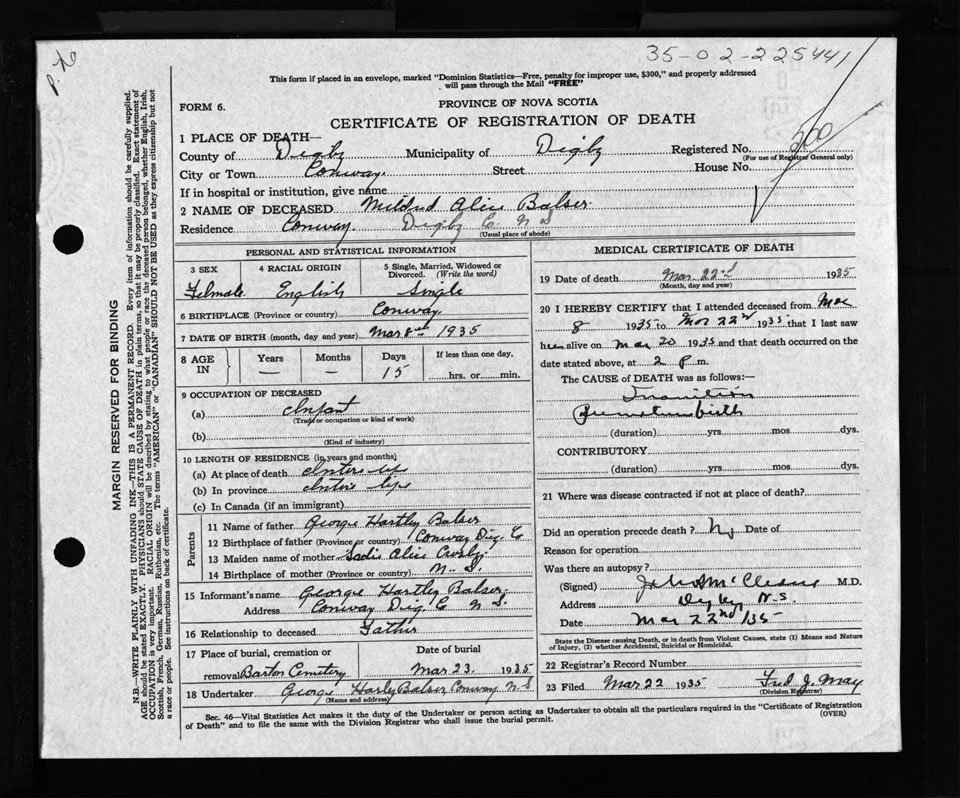 35-02-225441
This form if placed in an envelope, marked "Dominion Statistics—Free, penalty for improper use, $300," and properly addressed
will pass through the Mail "FREE"
FORM 6.
PROVINCE OF NOVA SCOTIA
CERTIFICATE OF REGISTRATION OF DEATH
1 PLACE OF DEATH—
County of Digby Municipality of Digby Registered No. 500
(For use of Registrar General only)
City or Town Conway. Street House No.
If in hospital or institution, give name
2 NAME OF DECEASED Mildred Alice Balser.
Residence Conway. Digby C. N S
(Usual place of abode)
PERSONAL AND STATISTICAL INFORMATION
3 SEX 4 RACIAL ORIGIN 5 Single, Married, Widowed or Divorced. (Write the word)
Felmale. English Single
6 BIRTHPLACE (Province or country) Conway.
7 DATE OF BIRTH (month, day and year) Mar 8th 1935
8 AGE IN Years Months Days If less than one day,
— — 15 hrs. or min.
9 OCCUPATION OF DECEASED
(a) Infant
(Trade or occupation or kind of work)
(b)
(Kind of industry)
10 LENGTH OF RESIDENCE (in years and months)
(a) At place of death
(b) In province
(c) In Canada (if an immigrant)
Parents
11 Name of father George Hartley Balser
12 Birthplace of father (Province or country) Conway Dig. C
13 Maiden name of mother Sadie Alice Crosby.
14 Birthplace of mother (Province or country) N. S.
15 Informant's name George Hartley Balser.
Address Conway Dig. C N. S.
16 Relationship to deceased Father
17 Place of burial, cremation or removal Barton Cemetery Date of burial Mar 23. 1935
18 Undertaker George Harley Balser Conway N. S
(Name and address)
MEDICAL CERTIFICATE OF DEATH
19 Date of death Mar 22nd 1935
(Month, day and year)
20 I HEREBY CERTIFY that I attended deceased from Mar
8 1935 to Mar 22nd 1935 that I last saw
her alive on Mar 20 1935 and that death occurred on the
date stated above, at 2 p m.
The CAUSE OF DEATH was as follows:—
Inanition
Premature birth
(duration) yrs. mos. dys.
CONTRIBUTORY
(duration) yrs. mos. dys.
21 Where was disease contracted if not at place of death?
Did an operation precede death? No Date of
Reason for operation
Was there an autopsy?
(Signed) M.D.
Address Digby N.S.
Date Mar 22nd /35
State the Disease causing Death, or in death from Violent Causes, state (1) Means and Nature
of Injury, (2) whether Accidental, Suicidal or Homicidal.
22 Registrar's Record Number
23 Filed Mar 22 1935 Fred J. May
(Division Registrar)
Sec. 46—Vital Statistics Act makes it the duty of the Undertaker or person acting as Undertaker to obtain all the particulars required in the "Certificate of Registration
of Death" and to file the same with the Division Registrar who shall issue the burial permit.
(OVER)
MARGIN RESERVED FOR BINDING
N.B.—WRITE PLAINLY WITH UNFADING INK—THIS IS A PERMANENT RECORD. Every item of information should be carefully supplied.
AGE should be stated EXACTLY. PHYSICIANS should STATE CAUSE OF DEATH in plain terms, so that it may be properly classified. Exact statement of
OCCUPATION is very important. RACIAL ORIGIN will be described by stating to what people or race the deceased person belonged, whether English, Irish,
Scottish, French, German, Russian, Ruthenian, etc. The terms "AMERICAN" or "CANADIAN" SHOULD NOT BE USED as they express citizenship but not
a race or people. See instructions on back of certificate.